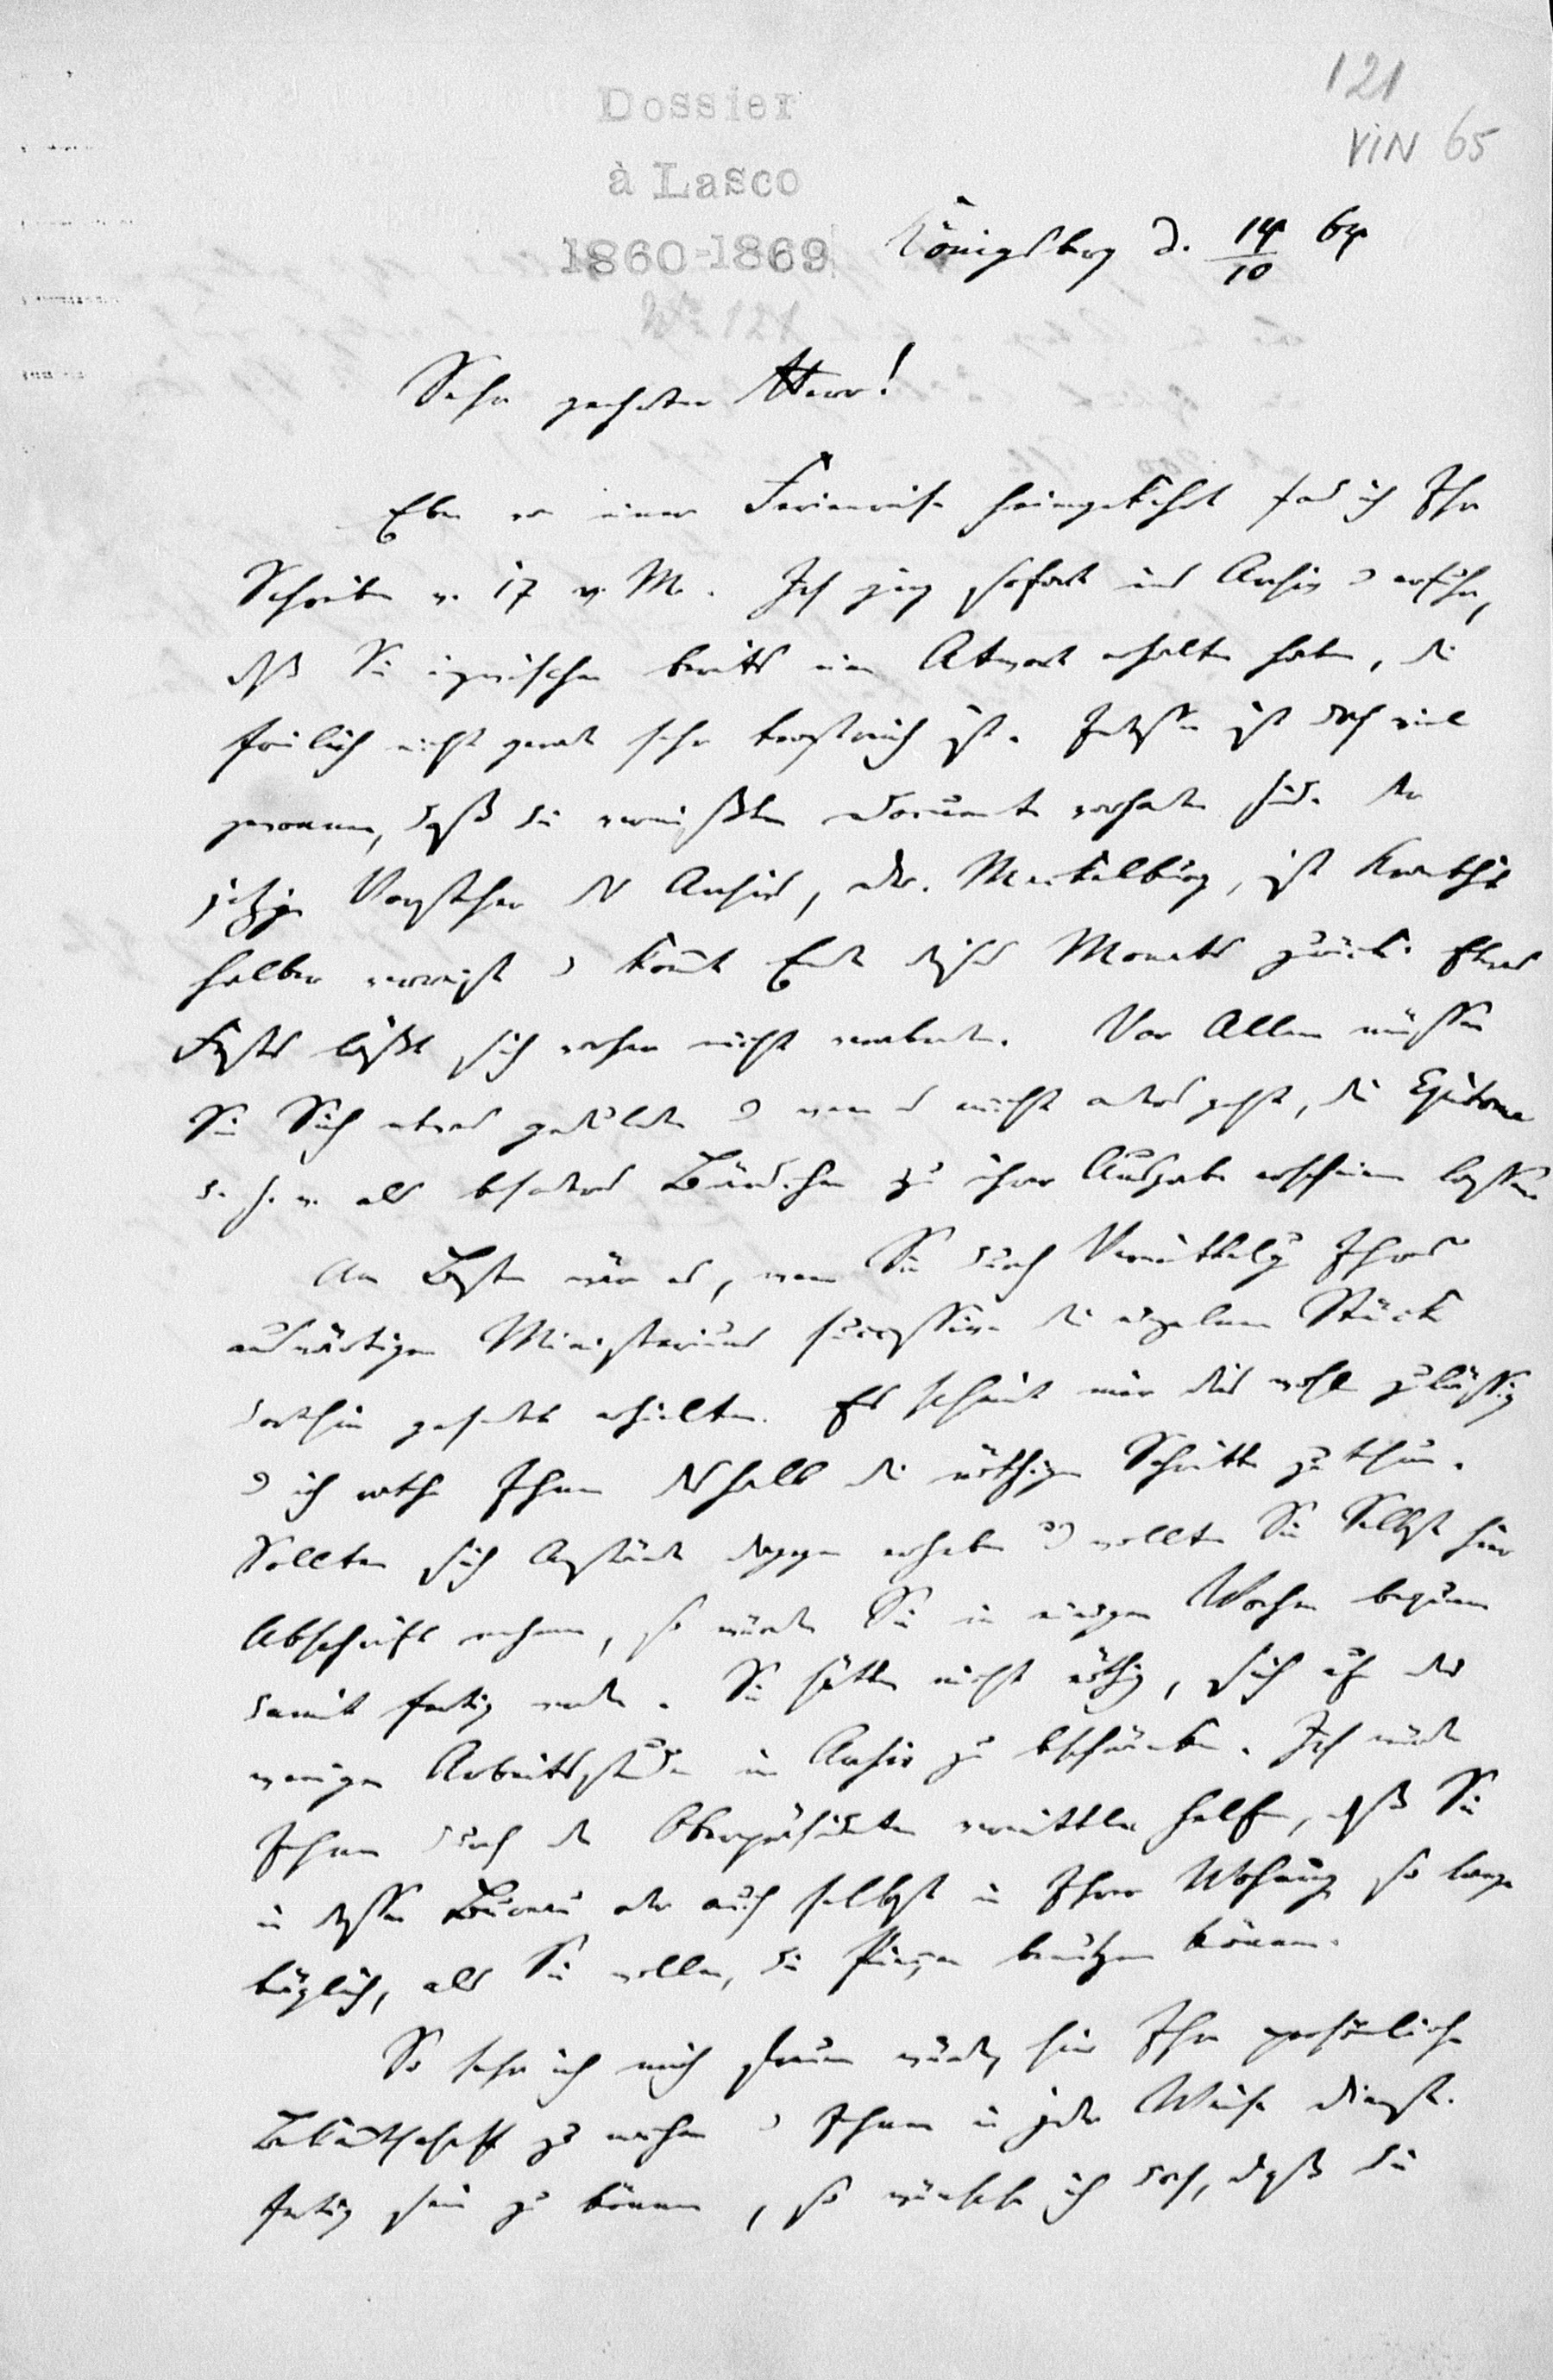 121
VIN 65
Dossier
à Lasco
1860-1869
No 121
Königsberg d. 14/10 64
Sehr geehrter Herr!
Eben von einer Ferienreise heimgekehrt fand ich Ihr
Schreiben v. 17 v. M. Ich ging sofort ins Archiv u erfuhr,
daß Sie inzwischen bereits eine Antwort erhalten haben, die
freilich nicht gerade sehr trostreich ist. Indessen ist doch viel
gewonnen, daß die vermißten Documente vorhanden sind. Der
jetzige Vorsteher des Archivs, Dr. Meckelburg, ist Krankheits
halber verreist u kommt Ende dieses Monats zurück. Etwas
Festes läßt sich vorher nicht verabreden. Vor Allem müssen
Sie Sich etwas gedulden u wenn es nicht anders geht, die Epitome
als besonderes Bändchen zu Ihrer Ausgabe erscheinen lassen.
Am Besten wäre es, wenn Sie durch Vermittelung Ihres
auswärtigen Ministeriums successive die einzelnen Stücke
dorthin gesendet erhielten. Es scheint mir dies wohl zulässig
u ich rathe Ihnen deshalb die nöthigen Schritte zu thun.
Sollten sich Anstände dagegen erheben und wollten Sie Selbst hier
Abschrift nehmen, so würden Sie in einigen Wochen bequem
damit fertig werden. Sie hätten nicht nöthig, sich auf die
wenigen Arbeitsstunden im Archiv zu beschränken. Ich würde
Ihnen durch den Oberpräsidenten vermitteln helfen, daß Sie
in dessen Büreau oder auch selbst in Ihrer Wohnung so lange
täglich, als Sie wollen, die Piecen benutzen können.
So sehr ich mich freuen würde, hier Ihre persönliche
Bekanntschaft zu machen u Ihnen in jeder Weise dienst-
fertig sein zu können, so wünsche ich doch, daß die